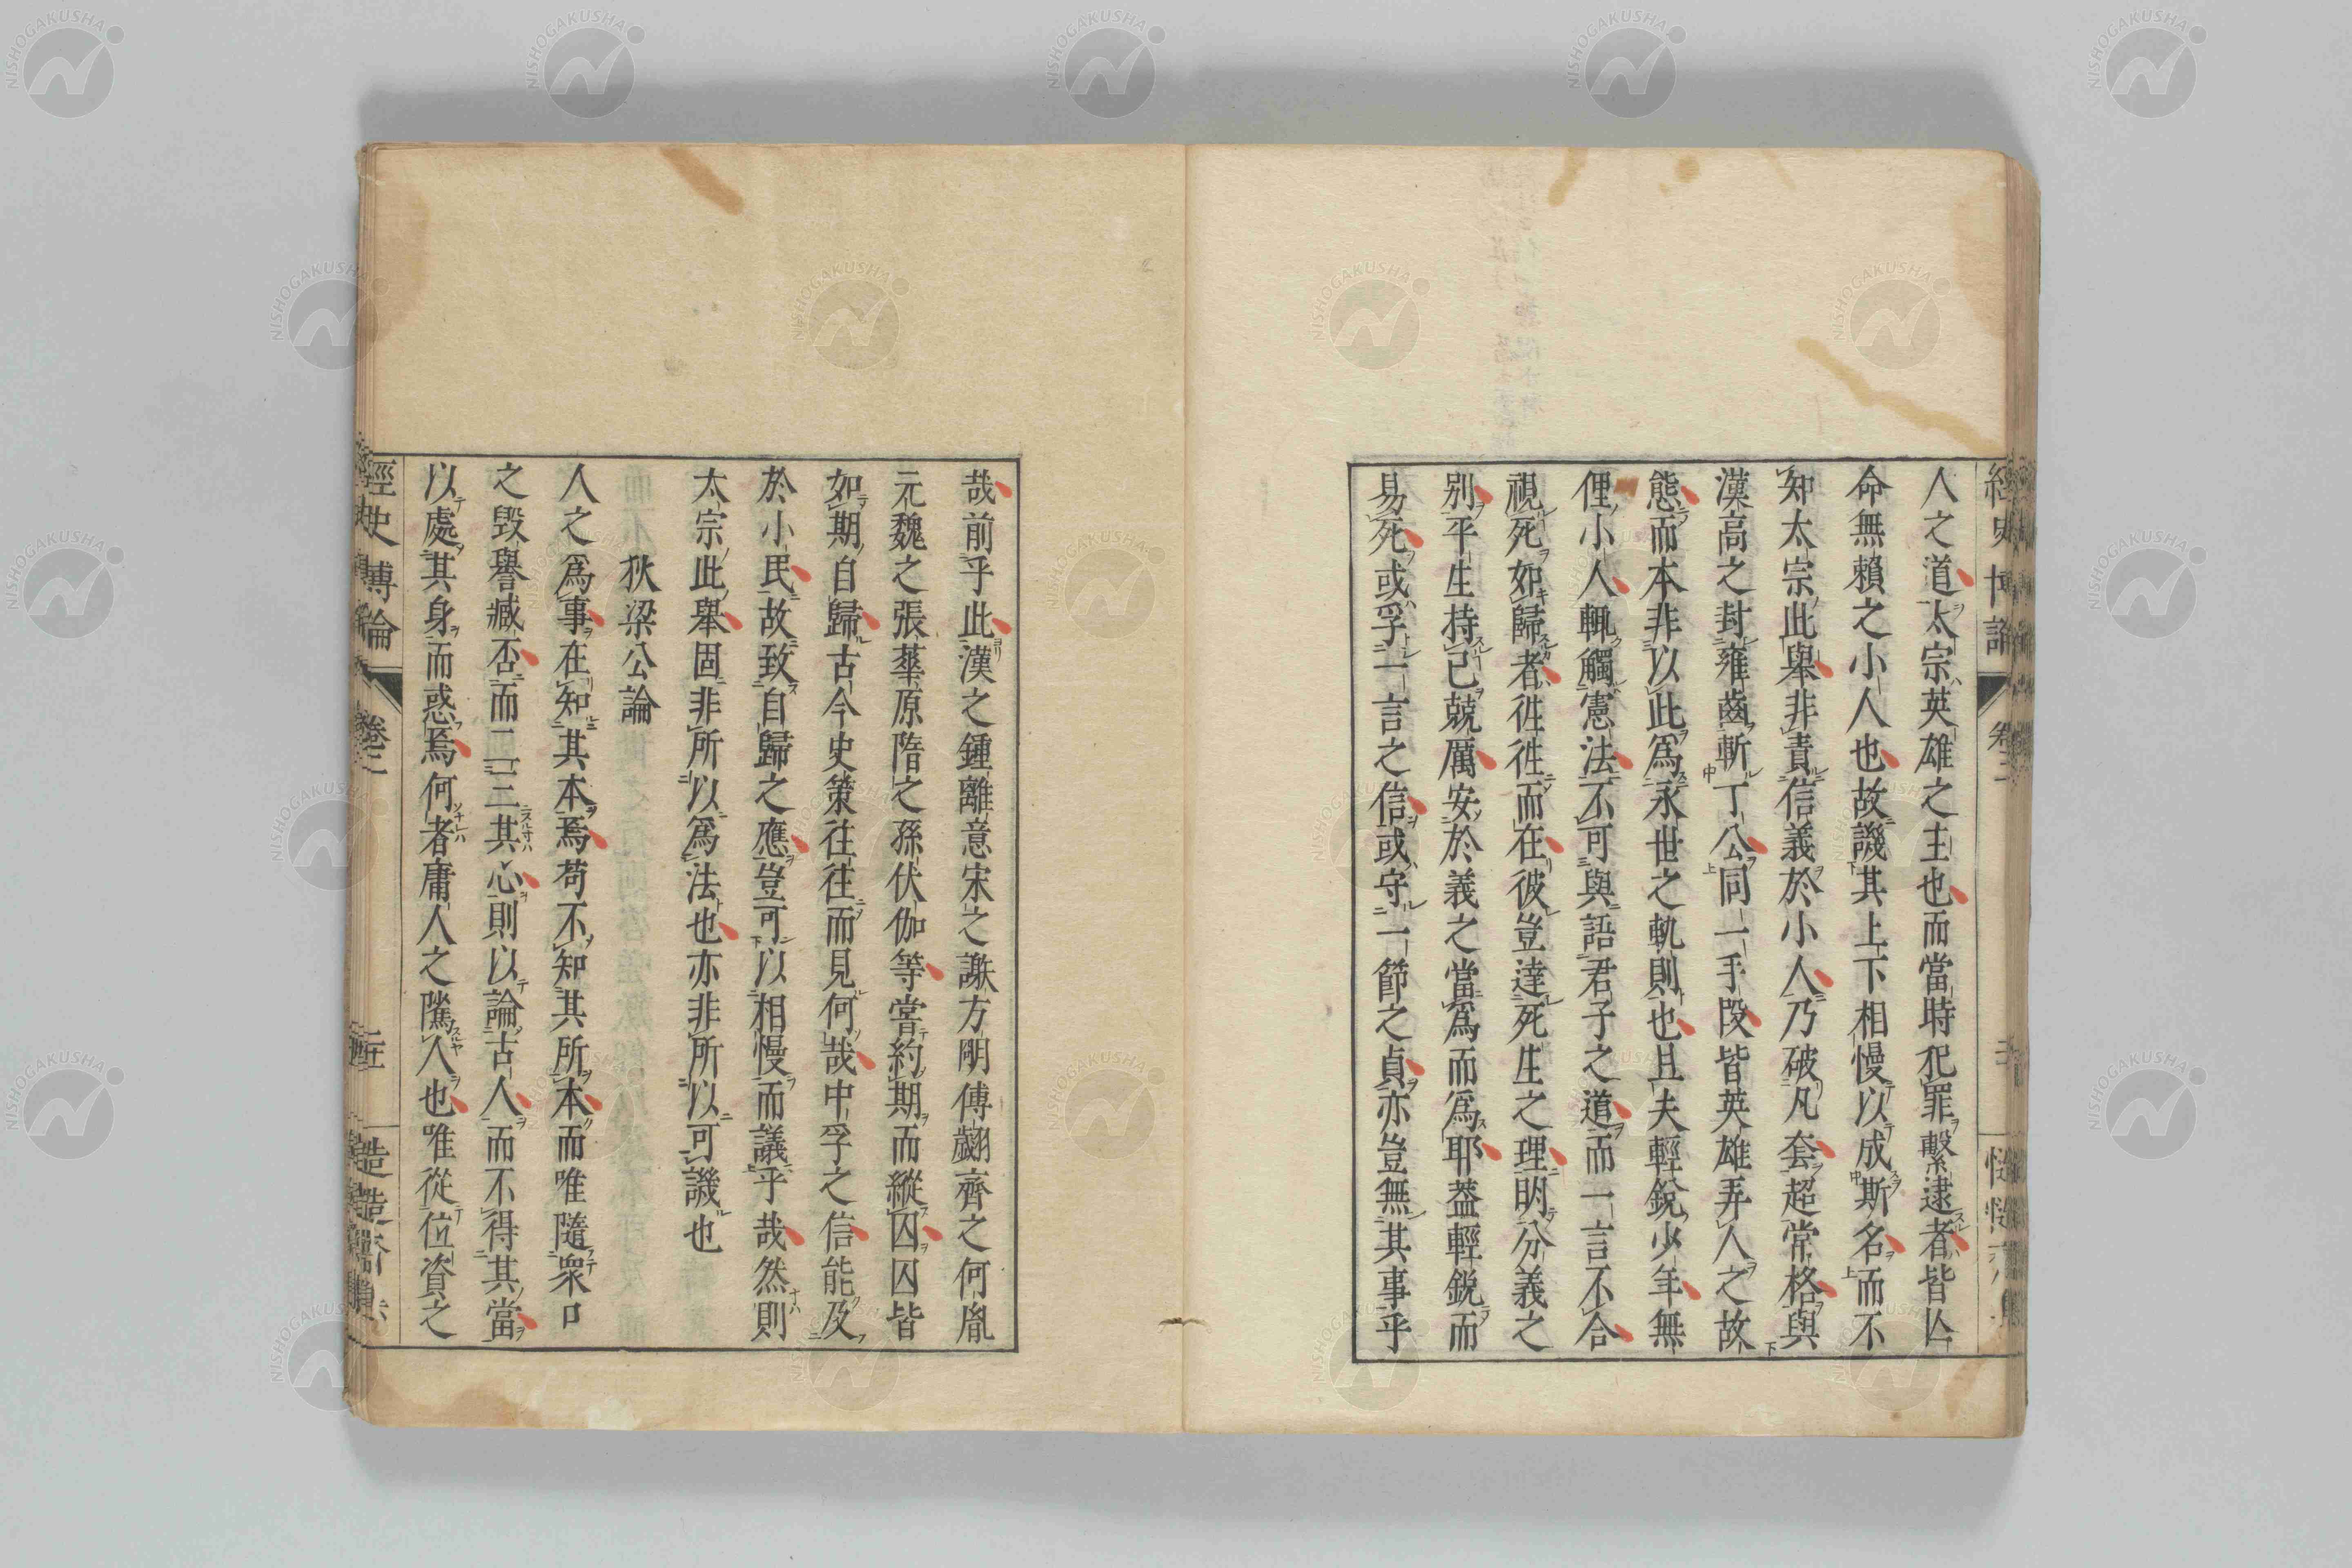 人之道太宗英雄之主也而當時犯罪繫逮者皆亾
命無賴之小人也故譏其上下相慢以成斯名而不
知太宗此舉非責信義於小人乃破凡套超常格與
漢高之封雍齒斬丁公同一手段皆英雄弄人之故
態而本非以此爲永世之軌則也且夫輕銳少年無
俚小人輒觸憲法不可與語君子之道而一言不合
視死如歸者徃徃而在彼豈達死生之理明分義之
別平生持己兢厲安於義之當爲而爲耶葢輕銳而
易死或孚一言之信或守一節之貞亦豈無其事乎
哉前乎此漢之鍾離意宋之謝方明傅翽齊之何胤
元魏之張華原隋之孫伏伽等嘗約期而縱囚囚皆
如期自歸古今史策往往而見何哉中孚之信能及
於小民故致自歸之應豈可以相慢而議乎哉然則
太宗此舉固非所以爲法也亦非所以可譏也
狄梁公論
人之爲事在知其本焉苟不知其所本而唯隨衆口
之毀譽臧否而二三其心則以論古人而不得其當
以處其身而惑焉何者庸人之隲人也唯從位資之
經史博論
卷二